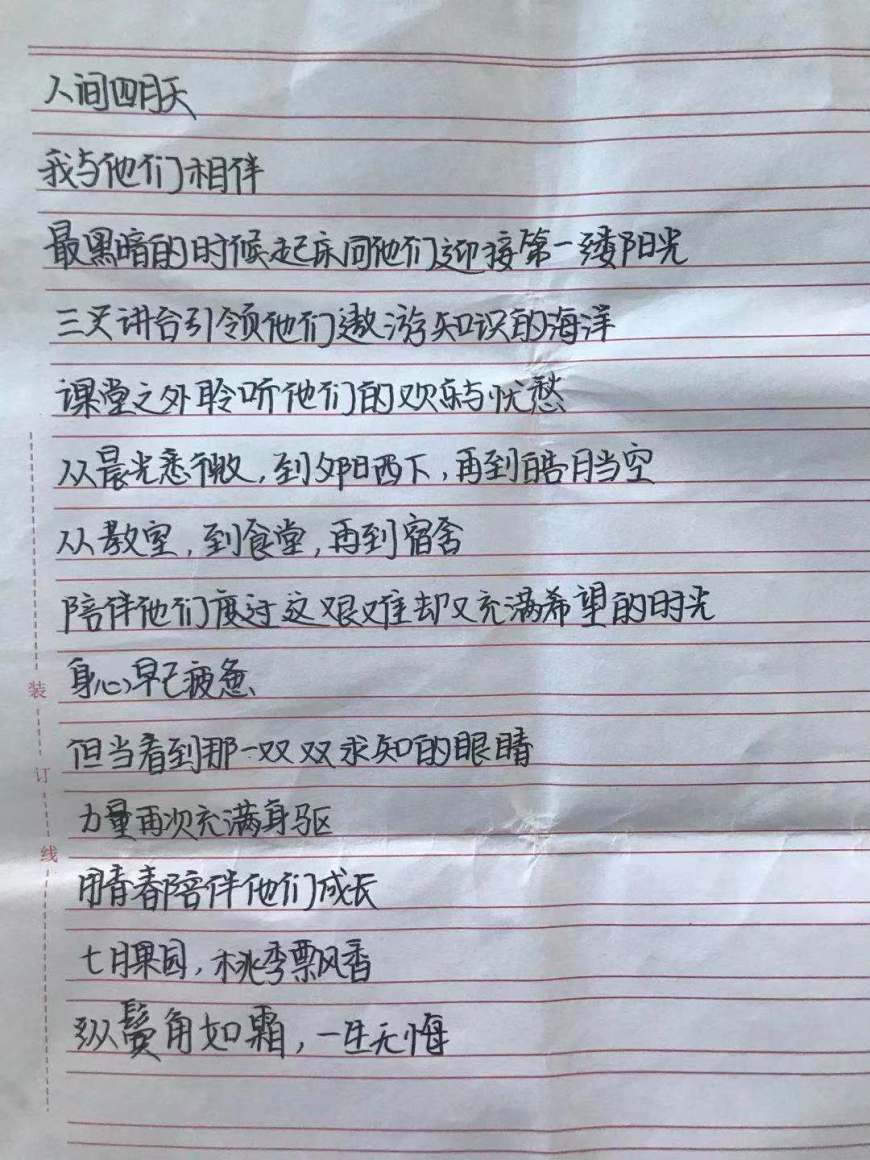 人间四月天
我与他们相伴
最黑暗的时候起床同他们迎接第一缕阳光
三尺讲台引领他们遨游知识的海洋
课堂之外聆听他们的欢乐与忧愁
从晨光熹微，到夕阳西下，再到皓月当空
从教室，到食堂，再到宿舍
陪伴他们度过这艰难却又充满希望的时光
身心早已疲惫
但当看到那一双双求知的眼睛
力量再次充满身驱
用青春陪伴他们成长
七月果园，桃李飘香
纵鬓角如霜，一生无悔
装
订
线